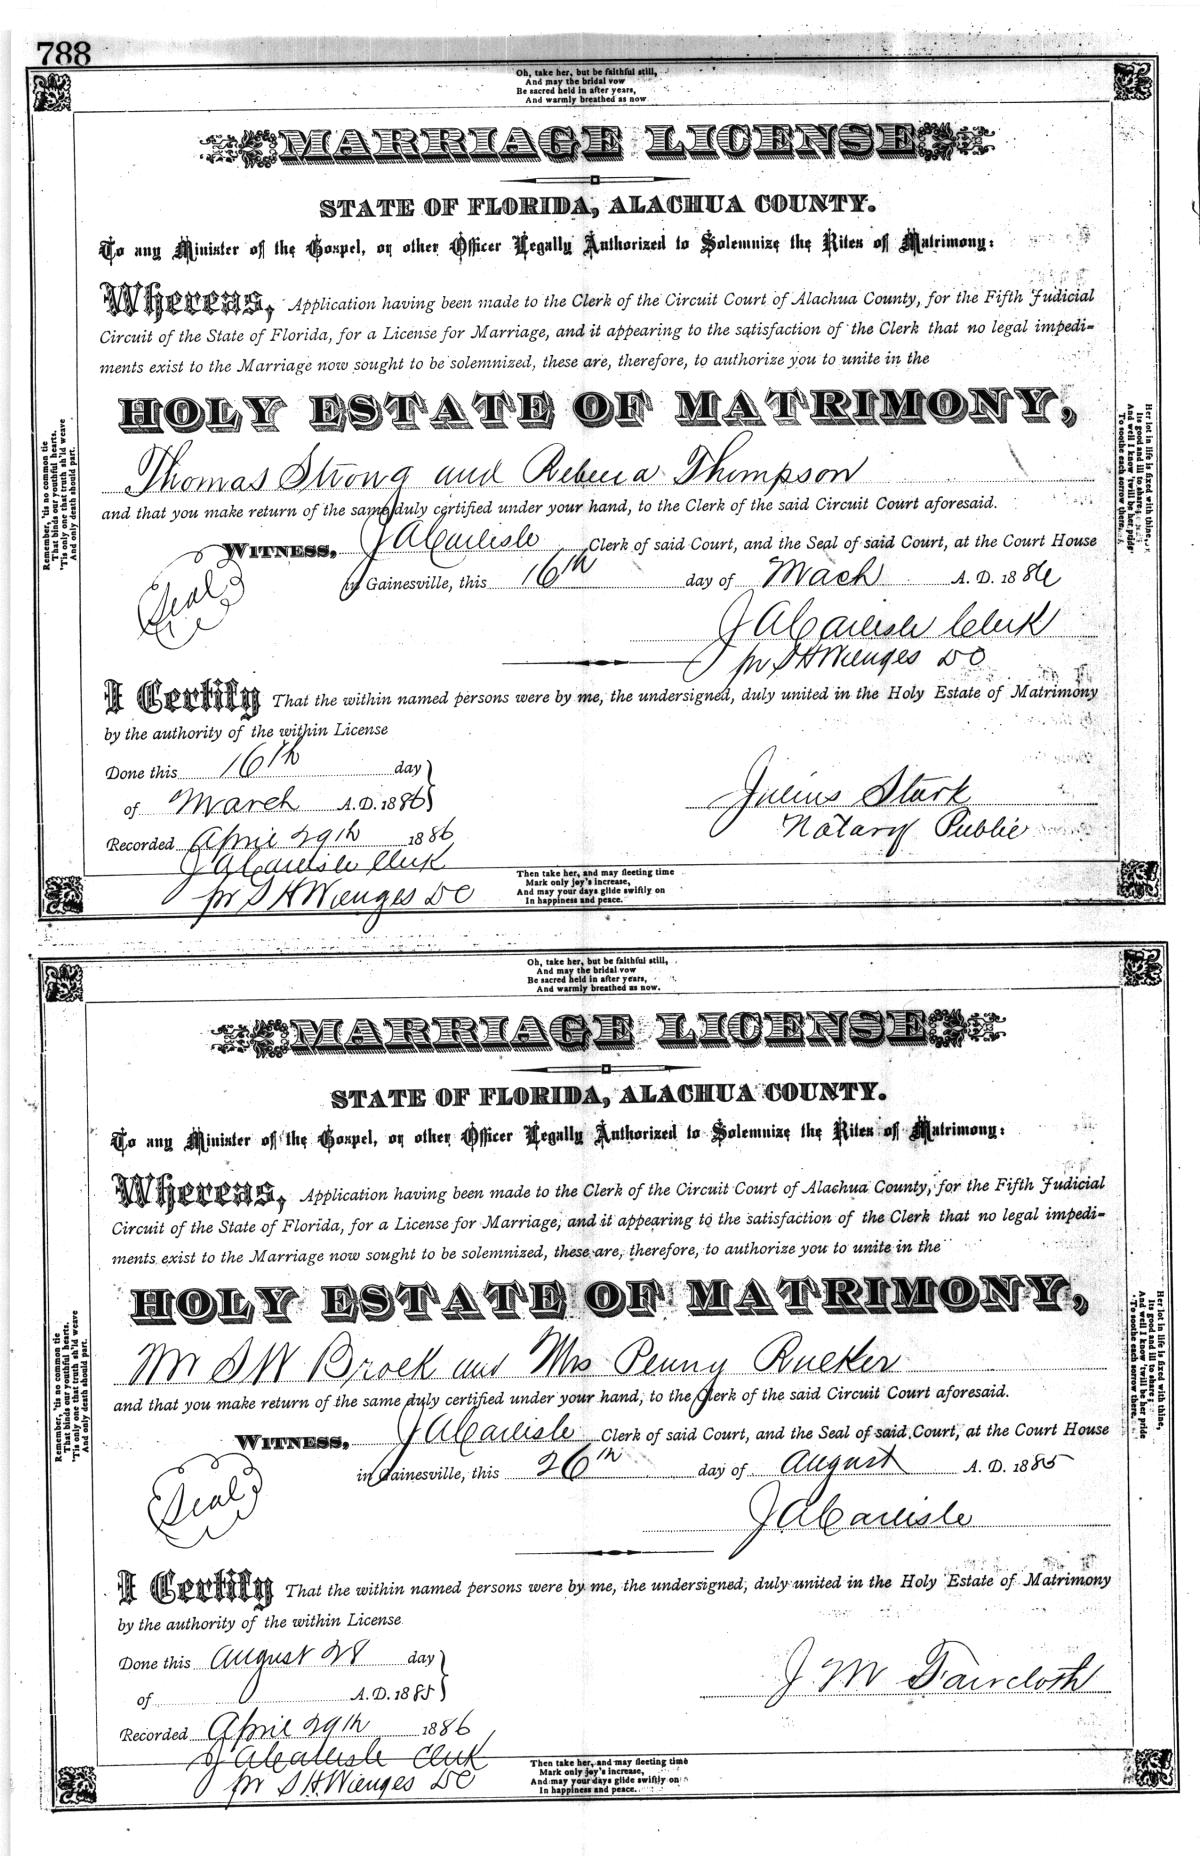 788
Oh, take her, but be faithful still,
And may the bridal vow
Be sacred held in after years,
And warmly breathed as now
MARRIAGE LICENSE
STATE OF FLORIDA, ALACHUA COUNTY.
To any Minister of the Gospel, or other Officer Legally Authorized to Solemnize the Rites of Matrimony:
Whereas, Application having been made to the Clerk of the Circuit Court of Alachua County, for the Fifth Judicial
Circuit of the State of Florida, for a License for Marriage, and it appearing to the satisfaction of the Clerk that no legal impedi-
ments exist to the Marriage now sought to be solemnized, these are, therefore, to authorize you to unite in the
HOLY ESTATE OF MATRIMONY,
Thomas Strong and Rebecca Thompson
and that you make return of the same duly certified under your hand, to the Clerk of the said Circuit Court aforesaid.
WITNESS, J A Carlisle Clerk of said Court, and the Seal of said Court, at the Court House
in Gainesville, this 16th day of Mach A. D. 1886
Seal
J A Carlisle Clerk
pr S H Wienges D C
I Certify That the within named persons were by me, the undersigned, duly united in the Holy Estate of Matrimony
by the authority of the within License
Done this 16th day
of March A. D. 1886
Julius Stark
Notary Public
Recorded April 29th 1886
J A Carlisle Clerk
pr S H Wienges D C
Remember, 'tis no common tie
That binds our youthful hearts,
'Tis only one that truth sh'ld weave
And only death should part.
Her lot in life is fixed with thine,
Its good and ill to share;
And well I know 'twill be her pride
To soothe each sorrow there.
Then take her, and may fleeting time
Mark only joy's increase,
And may your days glide swiftly on
In happiness and peace.
Oh, take her, but be faithful still,
And may the bridal vow
Be sacred held in after years,
And warmly breathed as now.
MARRIAGE LICENSE
STATE OF FLORIDA, ALACHUA COUNTY.
To any Minister of the Gospel, or other Officer Legally Authorized to Solemnize the Rites of Matrimony:
Whereas, Application having been made to the Clerk of the Circuit Court of Alachua County, for the Fifth Judicial
Circuit of the State of Florida, for a License for Marriage, and it appearing to the satisfaction of the Clerk that no legal impedi-
ments exist to the Marriage now sought to be solemnized, these are, therefore, to authorize you to unite in the
HOLY ESTATE OF MATRIMONY,
Mr S W Brock and Mrs Penny Rucker
and that you make return of the same duly certified under your hand, to the Clerk of the said Circuit Court aforesaid.
WITNESS, J A Carlisle Clerk of said Court, and the Seal of said Court, at the Court House
in Gainesville, this 26th day of August A. D. 1885
Seal
J A Carlisle
I Certify That the within named persons were by me, the undersigned, duly united in the Holy Estate of Matrimony
by the authority of the within License
Done this August 28 day
of A. D. 1885
J M Faircloth
Recorded April 29th 1886
J A Carlisle Clerk
pr S H Wienges D C
Remember, 'tis no common tie
That binds our youthful hearts.
'Tis only one that truth sh'ld weave
And only death should part.
Her lot in life is fixed with thine,
Its good and ill to share;
And well I know 'twill be her pride
To soothe each sorrow there.
Then take her, and may fleeting time
Mark only joy's increase,
And may your days glide swiftly on
In happiness and peace.